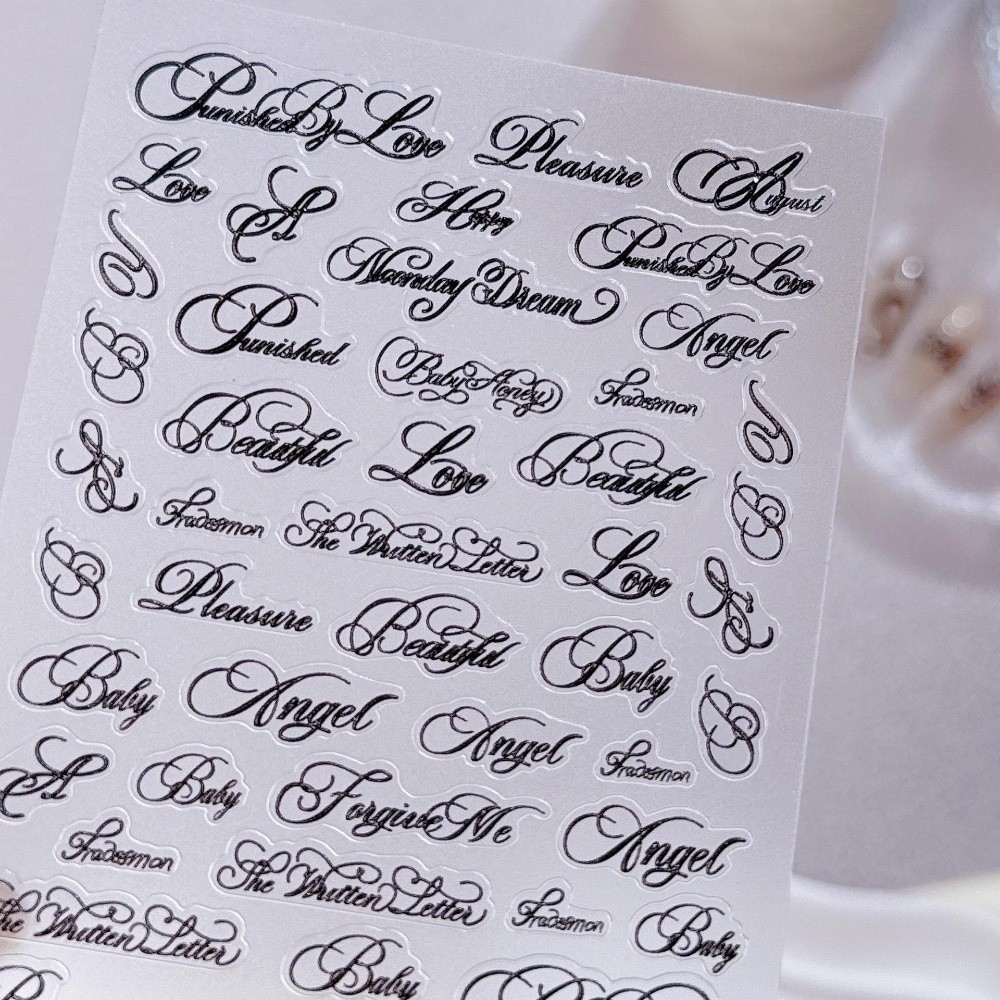 Punished By Love Pleasure August
Love A Happy Punished By Love
Y Noonday Dream Angel
B Punished Baby Honey Fradesmon
Beautiful Love Beautiful Y
Fradesmon The Written Letter Love B
B Pleasure Beautiful Baby
Baby Angel Angel Fradesmon B
A Baby Forgive Me Angel
Fradesmon The Written Letter Fradesmon Baby
The Written Letter Baby